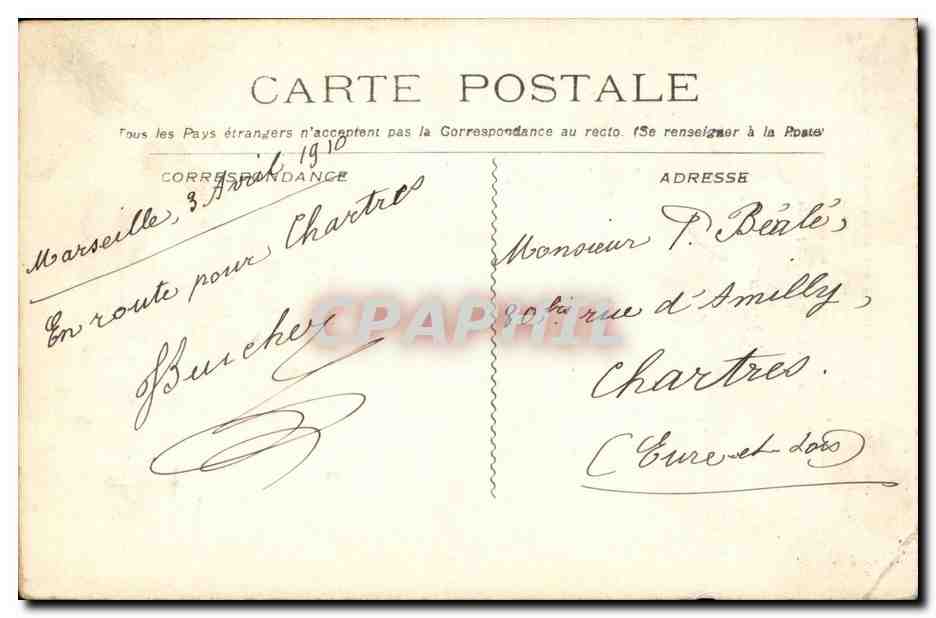 CARTE POSTALE
Tous les Pays étrangers n'acceptent pas la Correspondance au recto. (Se renseigner à la Poste)
CORRESPONDANCE
Marseille, 3 Avril 1910
En route pour Chartres
ADRESSE
Monsieur P. Béalé,
80 bis rue d'Amilly,
Chartres.
(Eure-et-Loir)
CPAPHIL